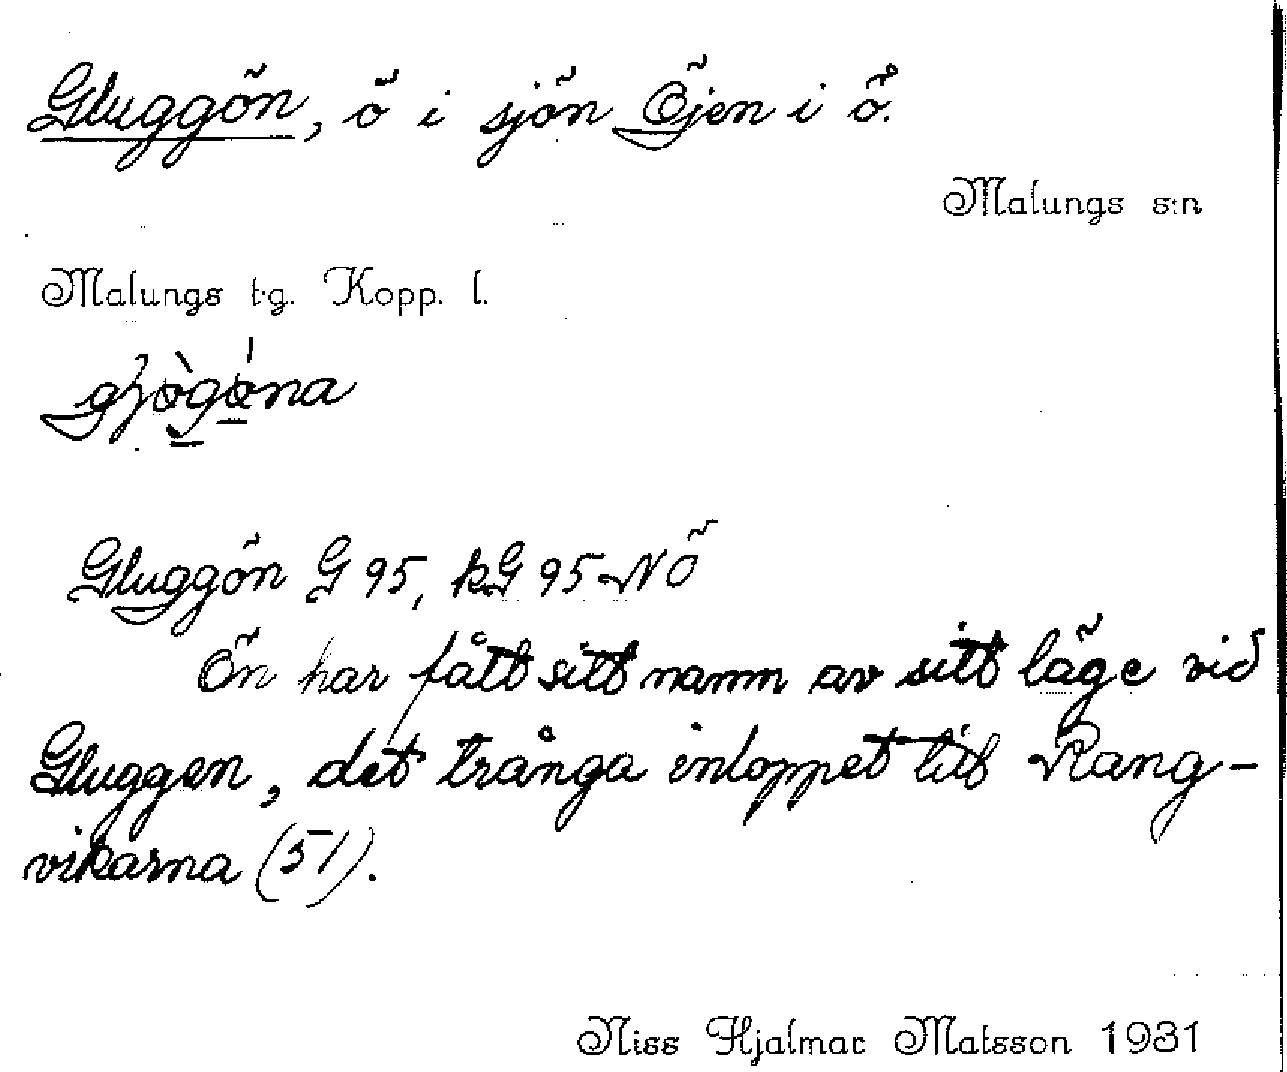 Gluggön, ö i sjön Öjen i ö.
Malungs s:n
Malungs t.g. Kopp. l.
Gluggön G 95, kG 95 NÖ
Ön har fått sitt namn av sitt läge vid
Gluggen, det trånga inloppet till Rang-
vikarna (51).
Niss Hjalmar Matsson 1931